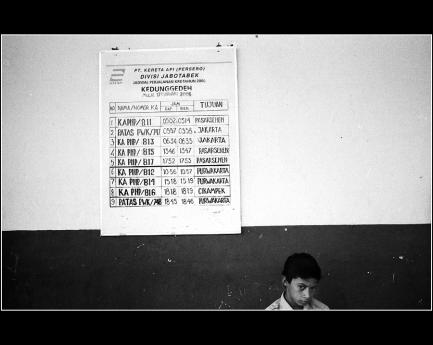 PT. KERETA API (PERSERO)
DIVISI JABOTABEK
JADWAL PERJALANAN KRETA
KEDUNGGEDEH
NO NAMA/NOMOR KA JAM TUJUAN
DAT BER
1 KA PHP/811 0502 0514 PASARSENEN
2 PATAS PWK/ JAKARTA
3 KA PHP/813 0634 0635 JAKARTA
4 KA PHP/815 1346 1347 PASARSENEN
5 KA PHP/817 1752 1753 PASARSENEN
6 KA PHP/812 1056 1057 PURWAKARTA
7 KA PHP/814 1518 1519 PURWAKARTA
8 KA PHP/816 1818 1819 CIKAMPEK
9 PATAS PWK/ 1845 1846 PURWAKARTA